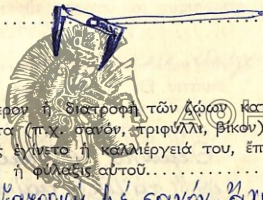 ερον ἡ διατροφὴ τῶν ζώων κατ
τα (π.χ. σανόν, τριφύλλι, βίκον)
ς ἐγίνετο ἡ καλλιέργειά του, ἐπ
ἡ φύλαξις αὐτοῦ
ΑΘΗ
μὲ σανόν